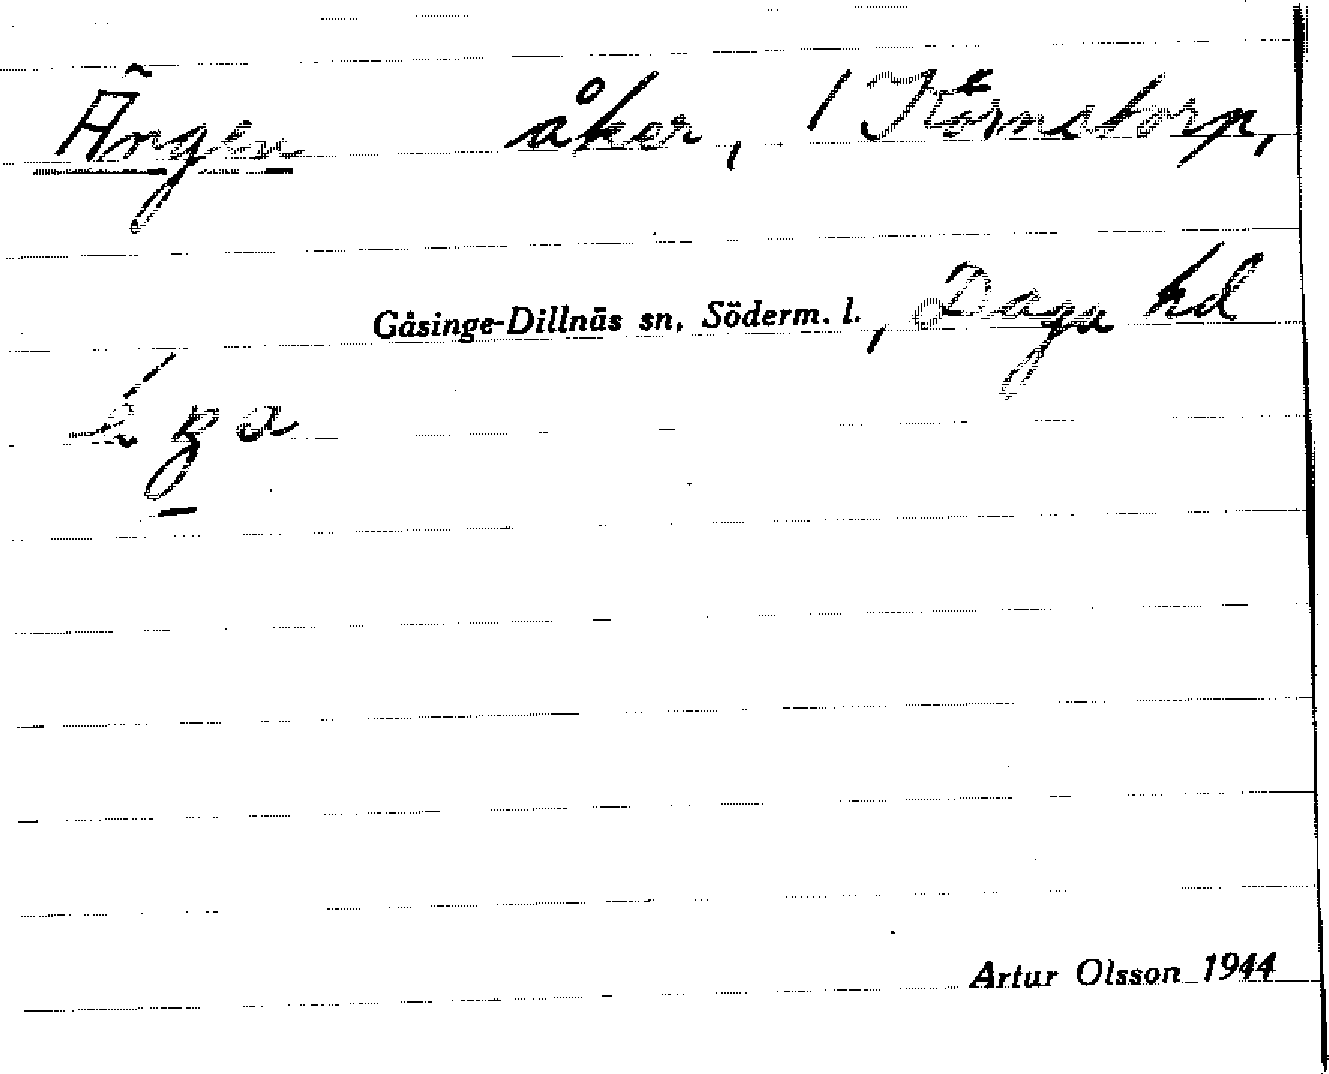 Ängen åker, 1 Körnstorp,
Gåsinge-Dillnäs sn, Söderm. l., Daga hd
Artur Olsson 1944